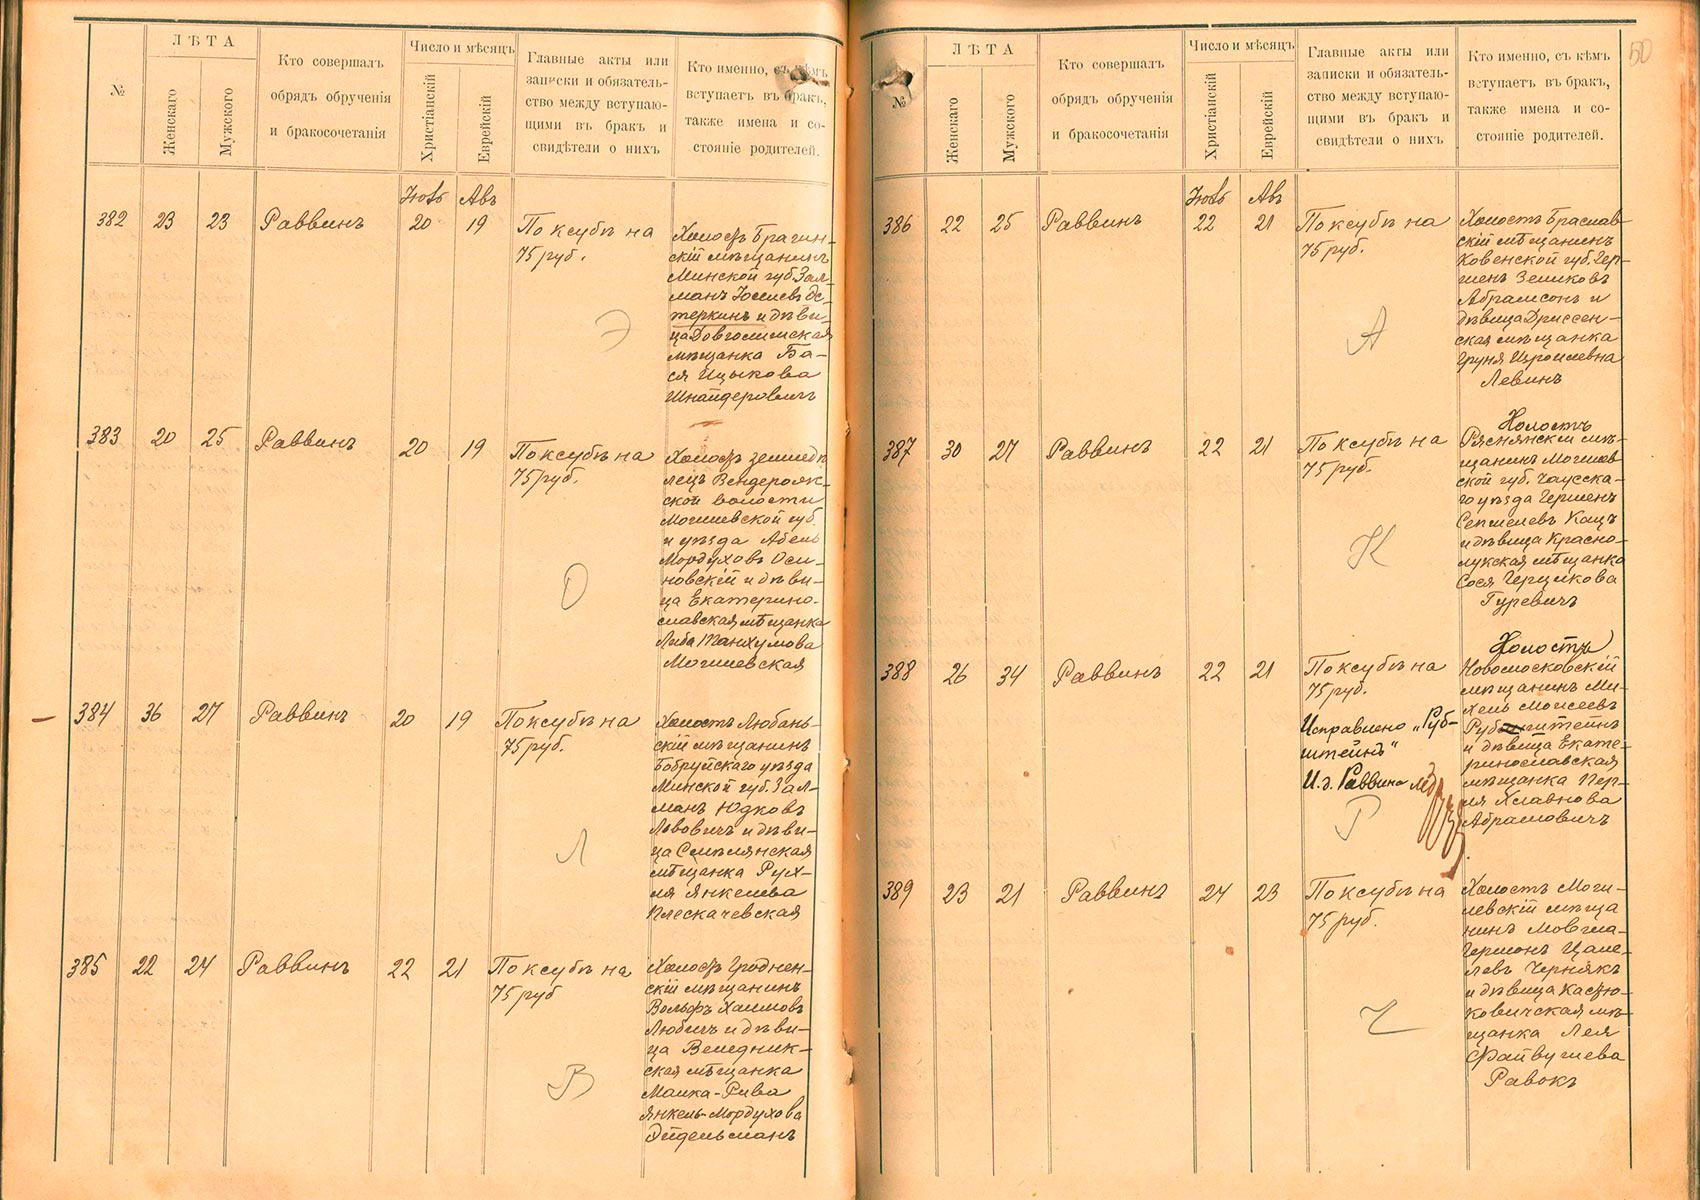 ЛѢТА
Женскаго
Мужского
№
Кто совершалъ
обрядъ обрученія
и бракосочетанія
Число и мѣсяцъ
Христіанскій
Еврейскій
Главные акты или
записки и обязатель-
ство между вступаю-
щими въ бракъ и
свидѣтели о нихъ
Кто именно, съ кѣмъ
вступаетъ въ бракъ,
также имена и со-
стояніе родителей.
Авъ
382 23 23 Раввинъ 20 19 По ксубѣ на
75 руб.
Холостъ Брагин-
скій мѣщанинъ
Минской губ. Зал-
манъ
теркинъ и дѣви-
ца
мѣщанка Ба-
ся Ицыкова
Шнайдеровичъ
Э
383 20 25 Раввинъ 20 19 По ксубѣ на
75 руб.
Холостъ земледѣ
лецъ
ской волости
Могилевской губ.
и уѣзда Абель
Мордуховъ Оси-
новскій и дѣви-
ца Екатерино-
славская мѣщанка
Либа Танхумова
Могилевская
О
384 36 27 Раввинъ 20 19 По ксубѣ на
75 руб.
Холостъ Любань-
скій мѣщанинъ
Бобруйскаго уѣзда
Минской губ. Зал-
манъ Юдковъ
Львовичъ и дѣви-
ца Смѣлянская
мѣщанка Рух-
ля Янкелева
Плескачевская
Л
385 22 24 Раввинъ 22 21 По ксубѣ на
75 руб
Холостъ Гроднен-
скій мѣщанинъ
Вольфъ Хаимовъ
и дѣви-
ца Веледник-
ская мѣщанка
Малка-Рива
Янкель-Мордухова
Эйдельманъ
50
ЛѢТА
Женскаго
Мужского
№
Кто совершалъ
обрядъ обрученія
и бракосочетанія
Число и мѣсяцъ
Христіанскій
Еврейскій
Главные акты или
записки и обязатель-
ство между вступаю-
щими въ бракъ и
свидѣтели о нихъ
Кто именно, съ кѣмъ
вступаетъ въ бракъ,
также имена и со-
стояніе родителей.
Авъ
386 22 25 Раввинъ 22 21 По ксубѣ на
75 руб.
Холостъ Браслав-
скій мѣщанинъ
Ковенской губ. Гер-
шенъ Зеликовъ
Абрамсонъ и
дѣвица Дриссен-
ская мѣщанка
Груня Изроилевна
Левинъ
А
387 30 27 Раввинъ 22 21 По ксубѣ на
75 руб.
Холостъ
Ряснянскій мѣ-
щанинъ Могилев
ской губ. Чаусска-
го уѣзда Гершенъ
Кацъ
и дѣвица Красно-
лукская мѣщанка
Сося Герцикова
Гуревичъ
К
388 26 34 Раввинъ 22 21 По ксубѣ на
75 руб.
Исправлено „Руб-
штейнъ“
И. д. Раввина
Холостъ
Новомосковскій
мѣщанинъ Ми-
хель Моисеевъ
и дѣвица Екате-
ринославская
мѣщанка Пер-
ля Хлавнова
Абрамовичъ
Р
389 23 21 Раввинъ 24 23 По ксубѣ на
75 руб.
Холостъ Моги-
левскій мѣща
нинъ Мовша-
Гершонъ Цале-
левъ Чернякъ
и дѣвица Кастю-
ковичская мѣ-
щанка Лея
Файвушева
Равокъ
Ч